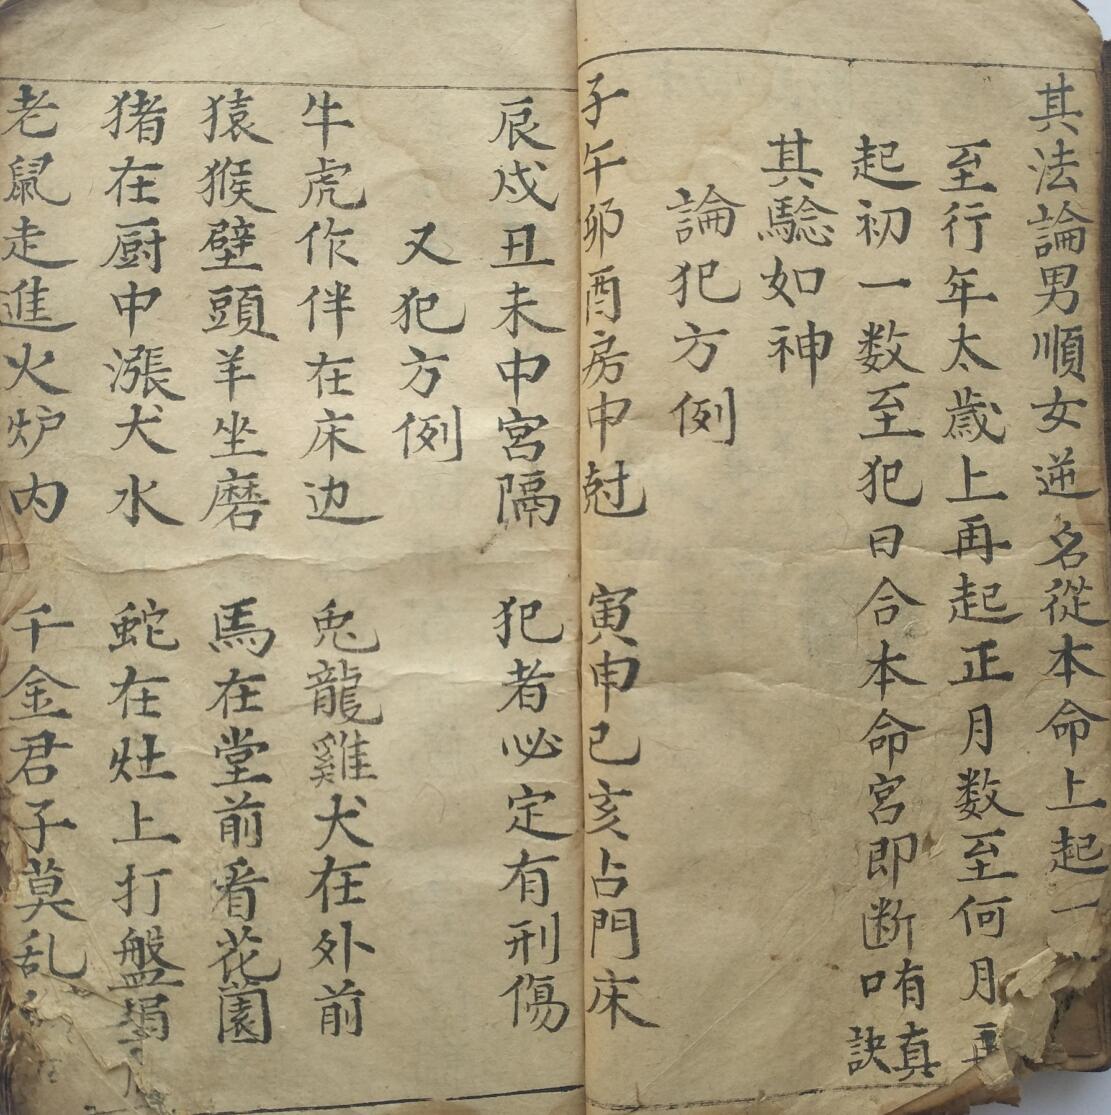 其法論男順女逆名從本命上起一
至行年太歲上再起正月数至何月再
起初一数至犯日合本命宮即断有真口訣
其騐如神
論犯方例
子午卯酉房中尅 寅申己亥占門床
辰戍丑未中宮隔 犯者必定有刑傷
又犯方例
牛虎作伴在床边 兎龍雞犬在外前
猿猴壁頭羊坐磨 馬在堂前看花園
猪在厨中漲犬水 蛇在灶上打盤
老鼠走進火炉内 千金君子莫乱